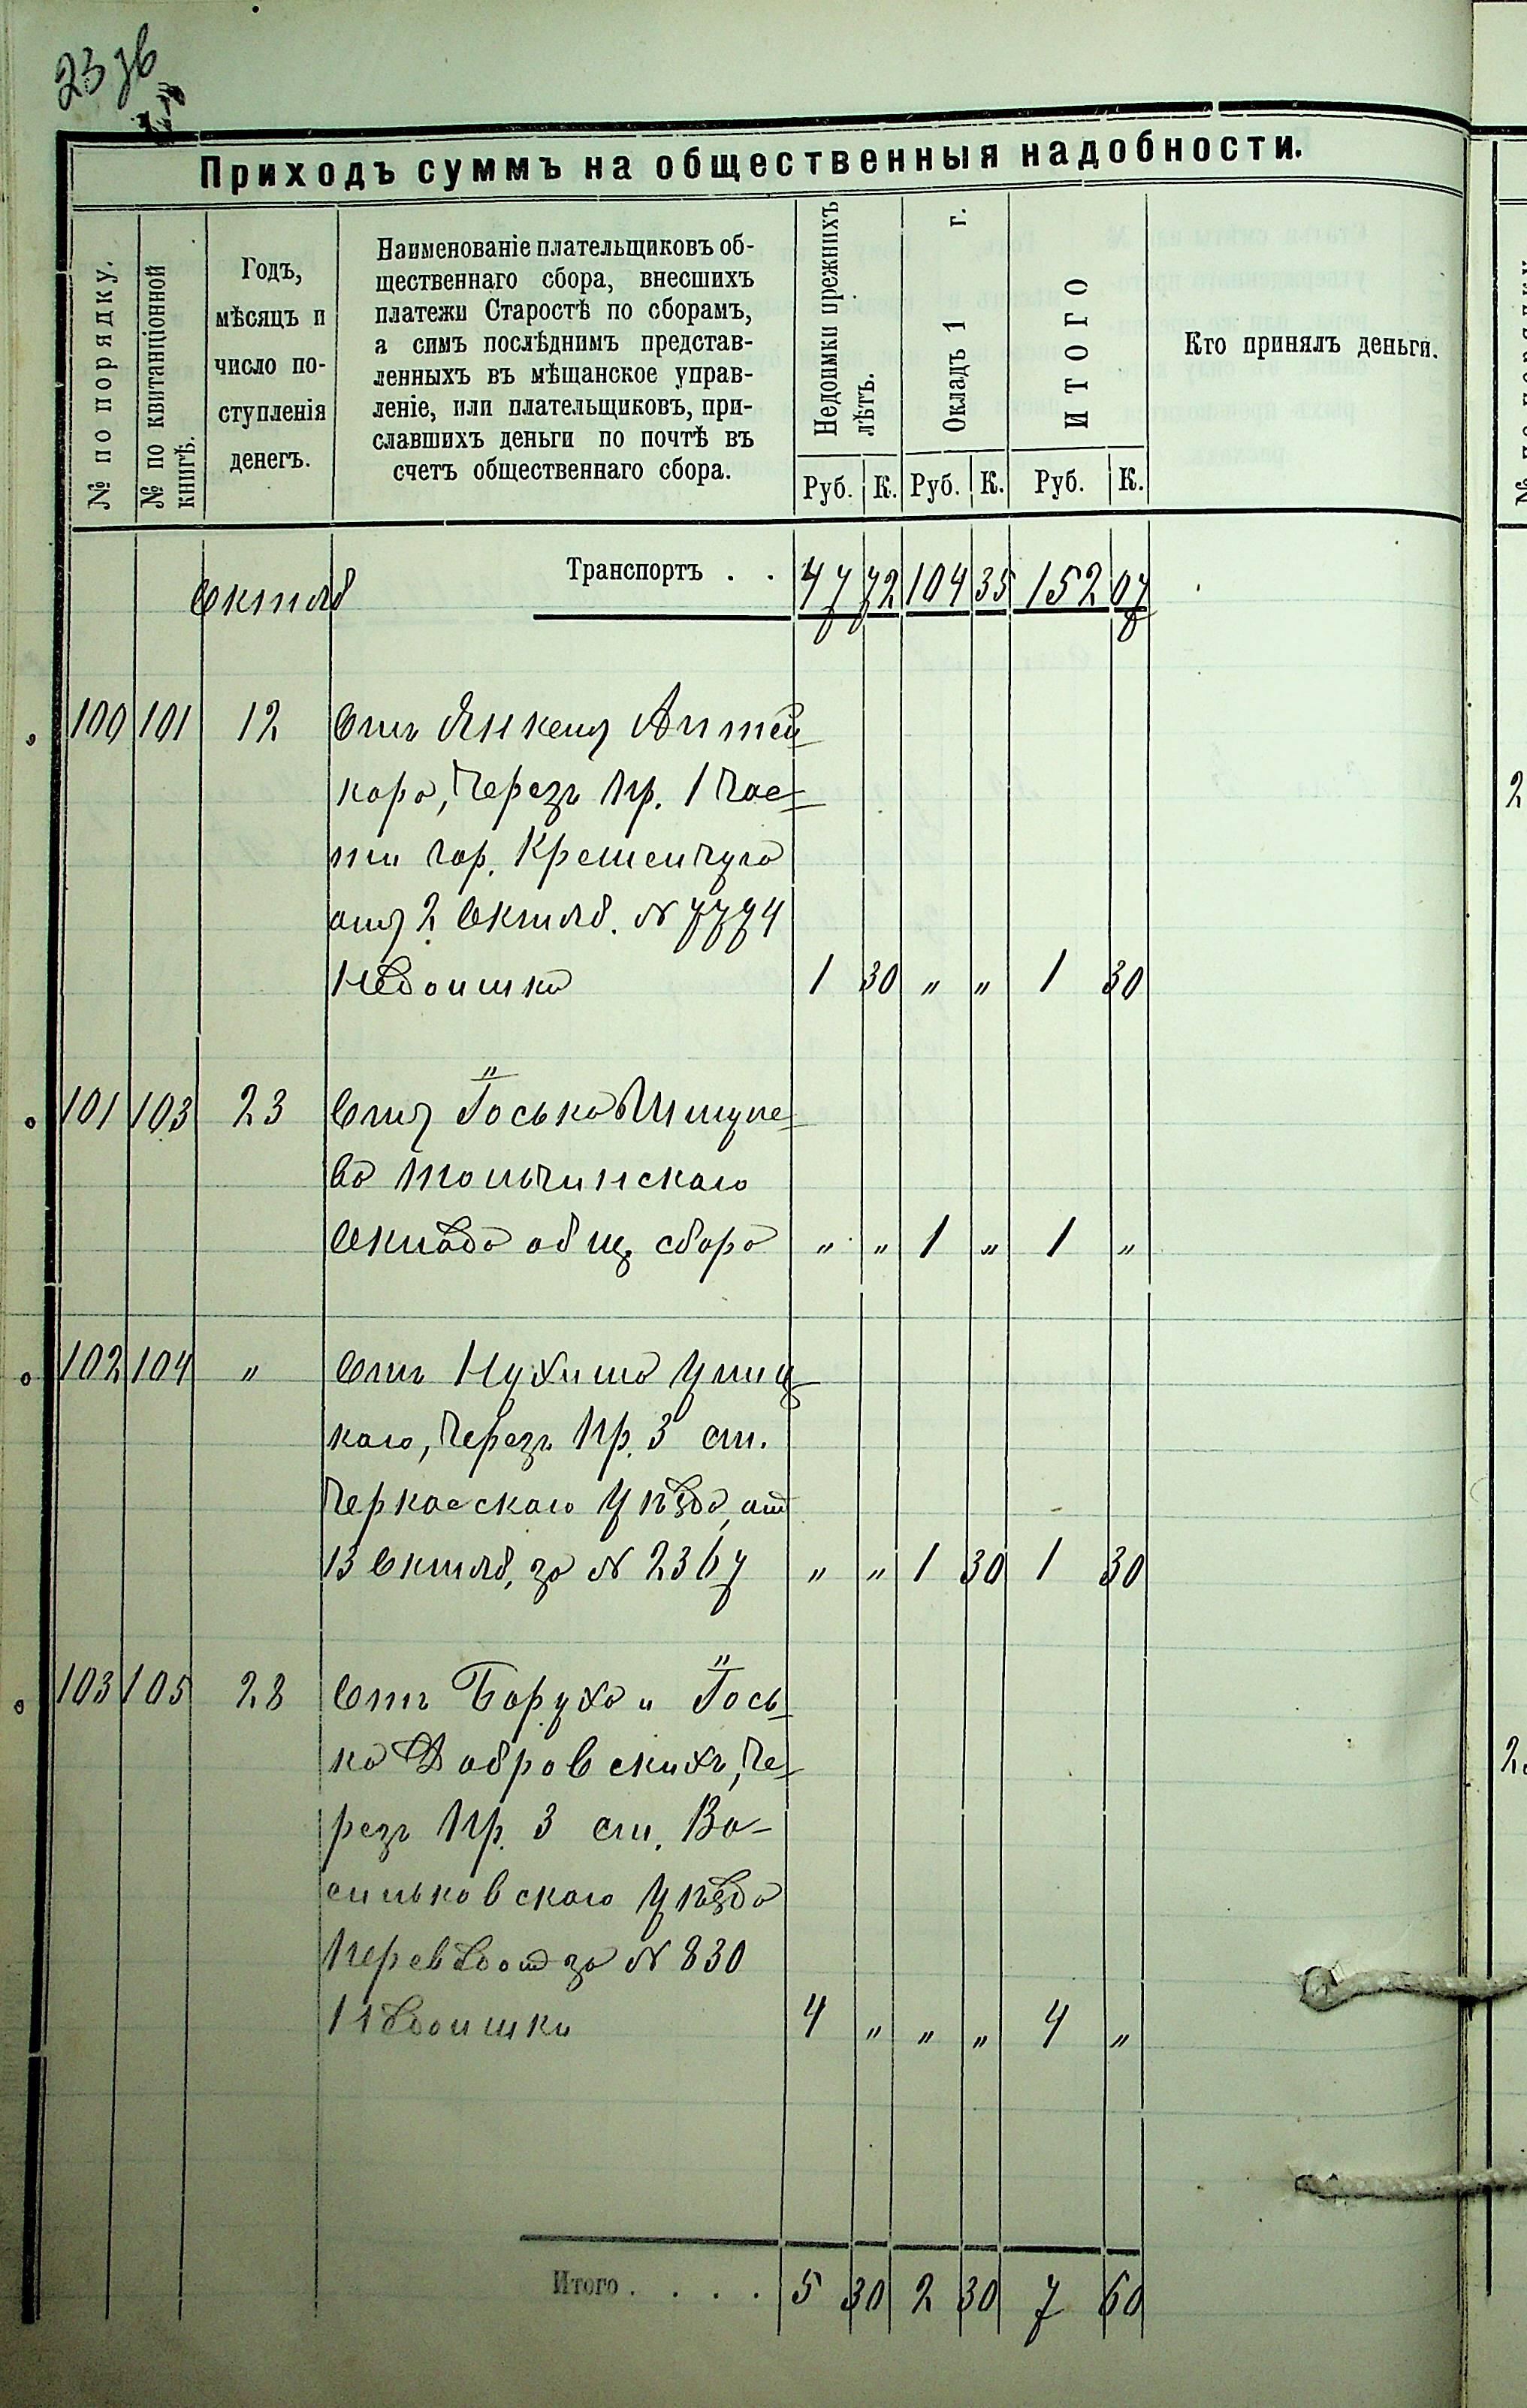 23 зв
Приходъ суммъ на общественныя надобности.
№ по порядку.
№ по квитанціонной
книгѣ.
Годъ,
мѣсяцъ и
число по-
ступленія
денегъ.
Наименованіе плательщиковъ об-
щественнаго сбора, внесшихъ
платежи Старостѣ по сборамъ,
а симъ послѣднимъ представ-
ленныхъ въ мѣщанское управ-
леніе, или плательщиковъ, при-
славшихъ деньги по почтѣ въ
счетъ общественнаго сбора.
Недоимки прежнихъ
лѣтъ.
Окладъ 1 г.
ИТОГО
Кто принялъ деньги.
Руб. К. Руб. К. Руб. К.
Октяб Транспортъ . . 47 72 104 35 152 07
100 101 12 Отъ Янкеля Аптей
кара, черезъ Пр. 1 час
ти гор. Кременчуга
отъ 2 Октяб. № 7774
Недоимка 1 30 " " 1 30
101 103 23 Отъ Іоська
Тольчинскаго
Оклада общ сбора " " 1 " 1 "
102 104 " Отъ Нухима Униц
каго, черезъ Пр. 3 ст.
Черкасскаго уѣзда, от
13 Октяб, за № 2367 " " 1 30 1 30
103 105 28 Отъ Боруха и Іось
ка Добровскихъ, че
резъ Пр. 3 ст. Ва-
сильковскаго Уѣзда
за № 830
Недоимки 4 " " " 4 "
Итого . . . . 5 30 2 30 7 60